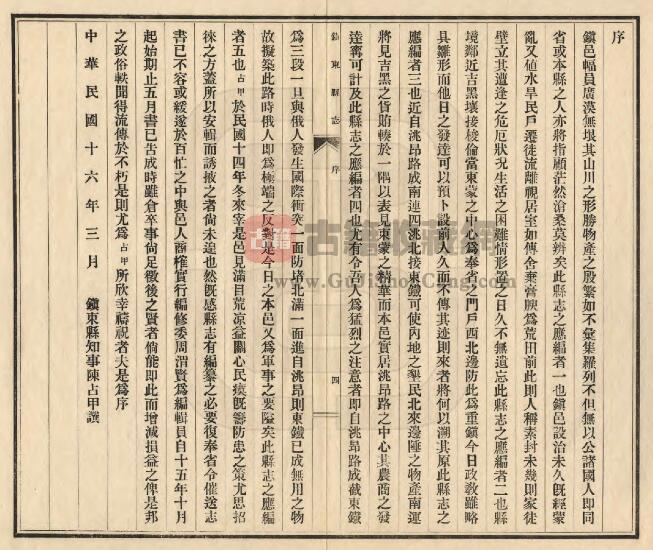 序
鎮邑幅員廣漠無垠其山川之形勝物產之殷繁如不彙集羅列不但無以公諸國人即同
省或本縣之人亦將指顧茫然滄桑莫辨矣此縣志之應編者一也鎮邑設治未久旣經蒙
亂又値水旱民戶遷徙流離視居室如傳舍棄膏腴爲荒田前此則人稱素封未幾則家徒
壁立其遭逢之危厄狀况生活之困難情形置之日久不無遺忘此縣志之應編者二也縣
境鄰近吉黑壤接梭倫當東蒙之中心爲奉省之門戶西北邊防此爲重鎮今日政敎雖略
具雛形而他日之發達可以預卜設前人久而不傳其迹則來者將何以溯其原此縣志之
應編者三也近自洮昂路成南連四洮北接東鐵可使內地之墾民北來邊陲之物產南運
將見吉黑之貨賄輳於一隅以表見東蒙之精華而本邑實居洮昂路之中心其農商之發
達寗可計及此縣志之應編者四也尤有令吾人爲猛烈之注意者即自洮昂路成截東鐵
鎮東縣志
序
四
爲三段一旦與俄人發生國際衝突一面防堵北滿一面進自洮昂則東鐵已成無用之物
故擬築此路時俄人即爲極端之反對是今日之本邑又爲軍事之要隘矣此縣志之應編
者五也占甲於民國十四年冬來宰是邑見滿目荒凉益關心民瘼旣籌防患之策尤思招
徠之方蓋所以安輯而誘掖之者尙未遑也然旣感縣志有編纂之必要復奉省令催送志
書已不容或緩遂於百忙之中與邑人商榷實行編修委周渭賢爲編輯員自十五年十月
起始期止五月書已告成時雖倉卒事尙足徵後之賢者倘能即此而增減損益之俾是邦
之政俗軼聞得流傳於不朽是則尤爲占甲所欣幸禱祝者夫是爲序
中華民國十六年三月　鎮東縣知事陳占甲譔
古籍
古籍收藏网
www.GujiShouCang.com